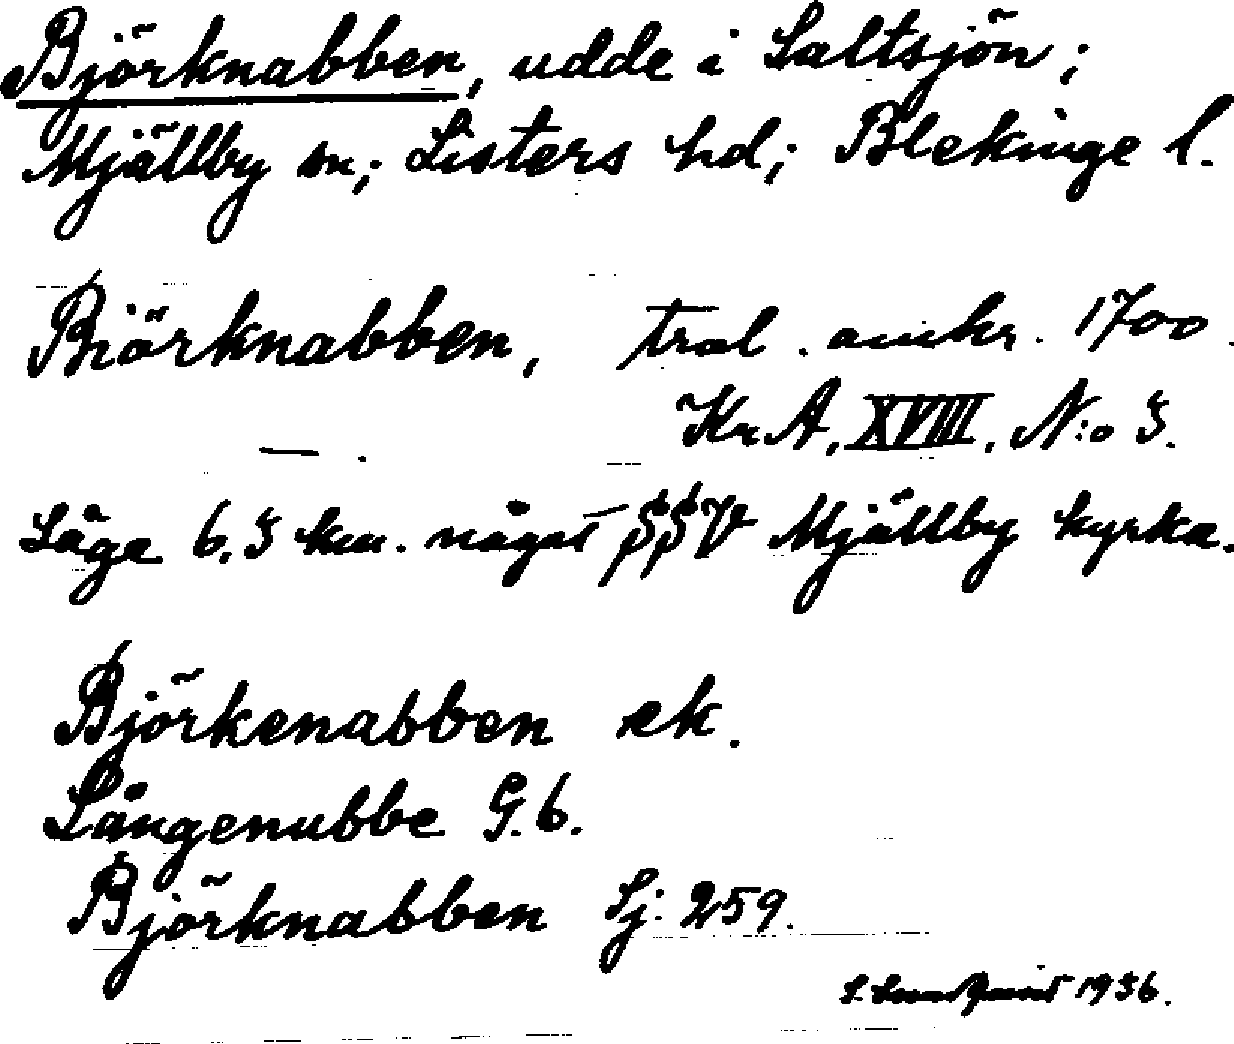 Björknabben, udde i Saltsjön;
Mjällby sn; Listers hd; Blekinge l.
Biörknabben, tral. omkr. 1700.
KrA, XVIII, N:o 5.
Läge 6,5 km. något SSV Mjällby kyrka.
Björkenabben ek.
Långenubbe G.b.
Björknabben Sj: 259.
1936.